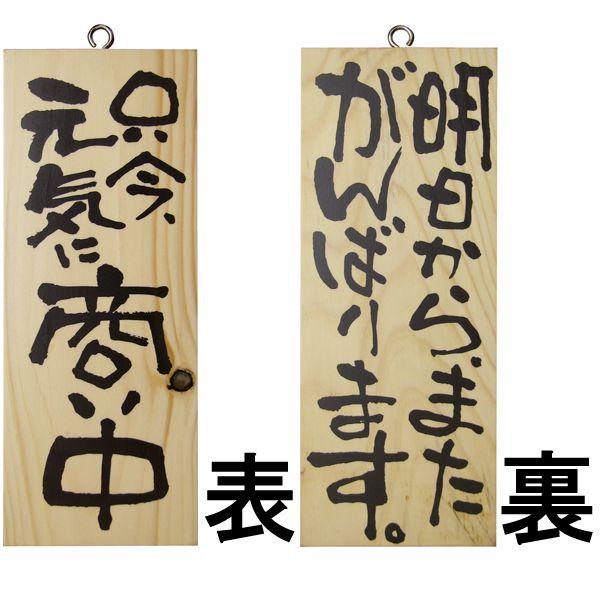 只今、
元気に
商い中
表
明日から、また
がんばります。
裏